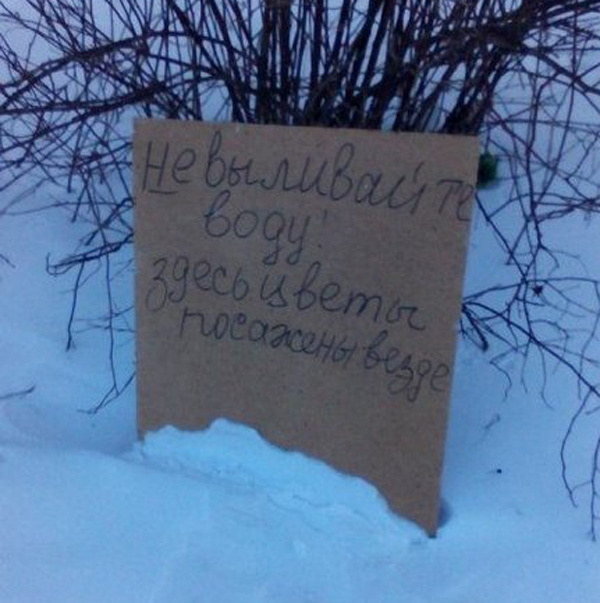 Не выливайте
воду!
здесь цветы
посажены везде